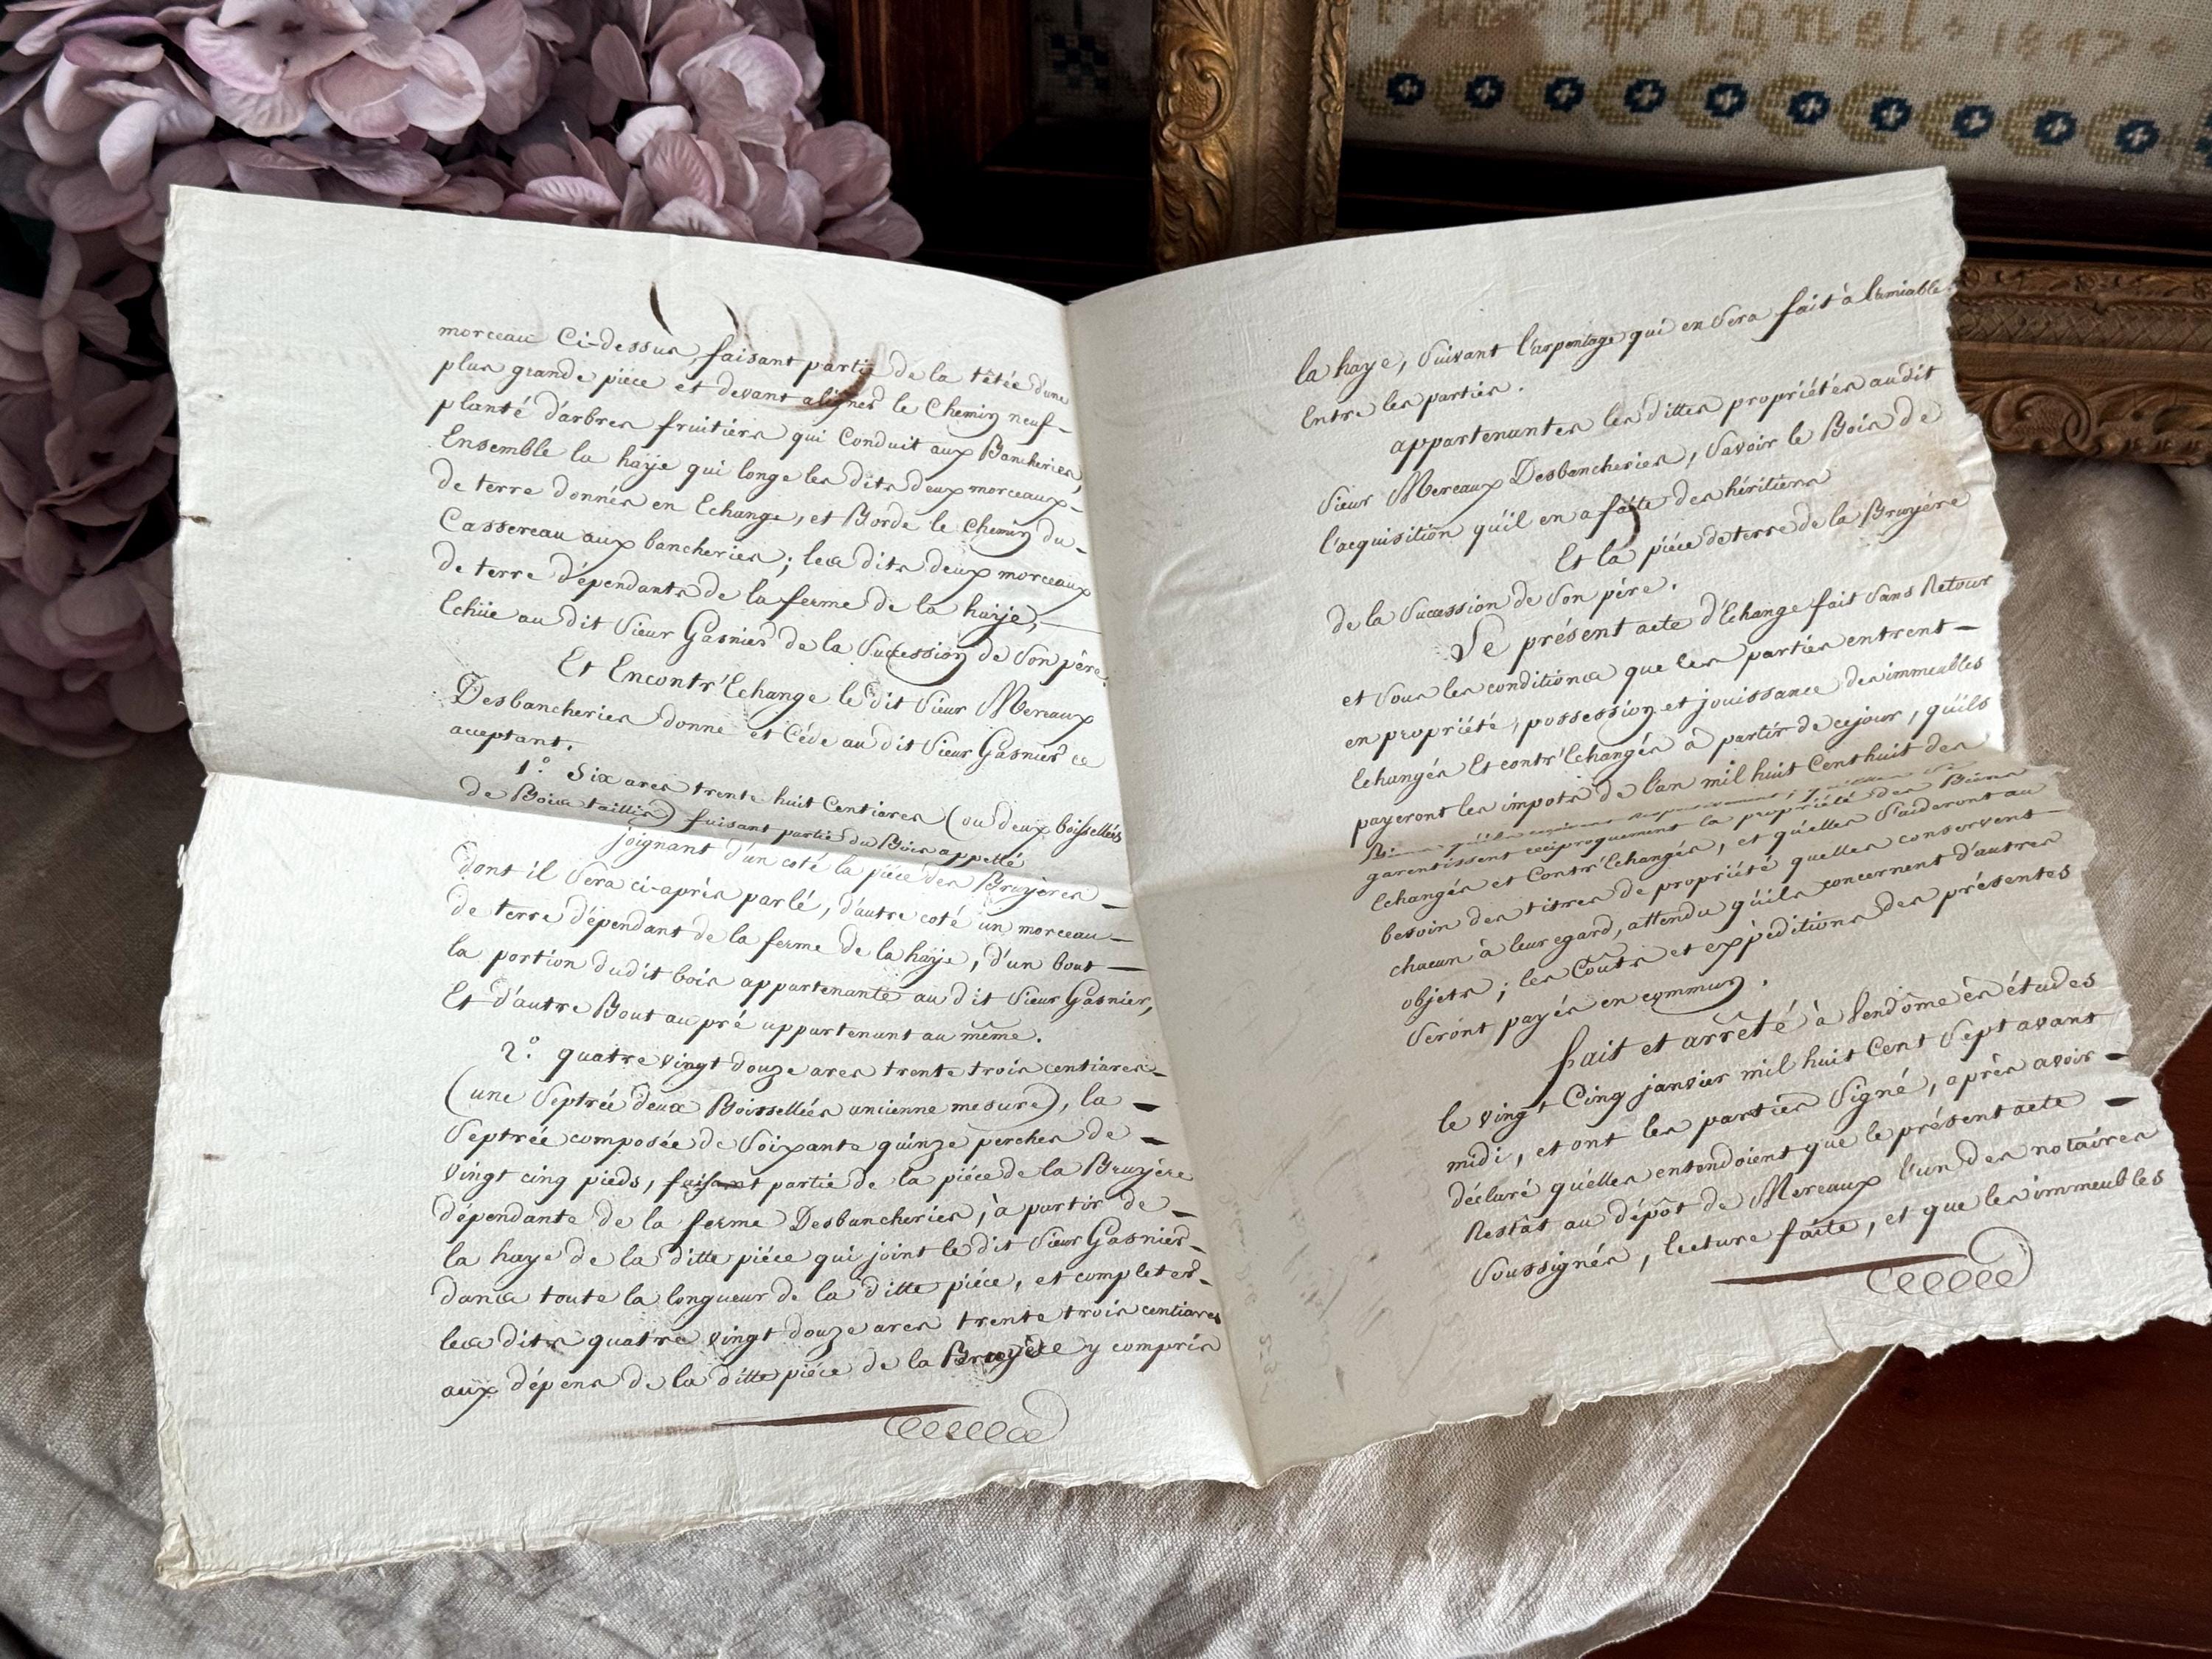 Pignel + 1847 +
morceau Ci-dessus, faisant partie de la têtée d'une
plus grande piéce et devant alignés le Chemin neuf-
planté d'arbres fruitiers qui Conduit aux Bancheries,
Ensemble la haÿe qui longe les dits deux morceaux-
de terre donnés en Echange, et Borde le Chemin du-
Cassereau aux bancheries; les dits deux morceaux
de terre dépendants de la ferme de la haÿe,
Echüe au dit Sieur Gasnier de la Succession de Son père.
Et Encontr'Echange le dit Sieur Mereaux
Desbancheries donne et Céde au dit Sieur Gasnier ce
acceptant.
1.° Six ares trente huit Centiares (ou deux boissellées
de Bois taillis) faisant partie du Bois appellé
joignant d'un coté la piéce des Bruyères -
dont il Sera ci-après parlé, d'autre coté un morceau -
de terre dépendant de la ferme de la haÿe, d'un bout -
la portion dudit bois appartenante au dit Sieur Gasnier,
Et d'autre Bout au pré appartenant au même.
2.° quatre vingt douze ares trente trois centiares-
(une Septrée deux Boissellées ancienne mesure), la -
Septrée composée de Soixante quinze perches de -
vingt cinq pieds, faisant partie de la piéce de la Bruyère
dépendante de la ferme Desbancheries, à partir de -
la haye de la ditte piéce qui joint le dit Sieur Gasnier-
dans toute la longueur de la ditte piéce, et completer-
les dits quatre vingt douze ares trente trois centiares
aux dépens de la ditte piéce de la Bruyère y compris
la haye, Suivant l'arpentage qui en Sera fait à l'amiable
Entre les parties.
appartenantes les dittes propriétés audit
Sieur Mereaux Desbancheries, Savoir le Bois de
l'acquisition qu'il en a faite des héritiers
Et la piéce de terre de la Bruyére
de la Succession de Son pére.
Le présent acte d'Echange fait Sans Retour
et Sous les conditions que les parties entrent -
en propriété, possession et jouissance des immeubles
Echangés Et contr'Echangés à partir de ce jour, qu'ils
payeront les impots de l'an mil huit Cent huit des
garentissent réciproquement la propriété des Biens
Echangés et Contr'Echangés, et qu'elles S'aideront au
besoin des titres de propriété qu'elles conservent -
chacun à leur egard, attendu qu'ils concernent d'autres
objets; les Coûts et expéditions des présentes
Seront payés en commun.
fait et arrêté à Vendôme ès études
le vingt Cinq janvier mil huit Cent Sept avant
midi, et ont les parties Signé, après avoir -
déclaré qu'elles entendoient que le présent acte -
Restât au dépôt de Mereaux l'un des notaires
Soussignés, lecture faite, et que les immeubles